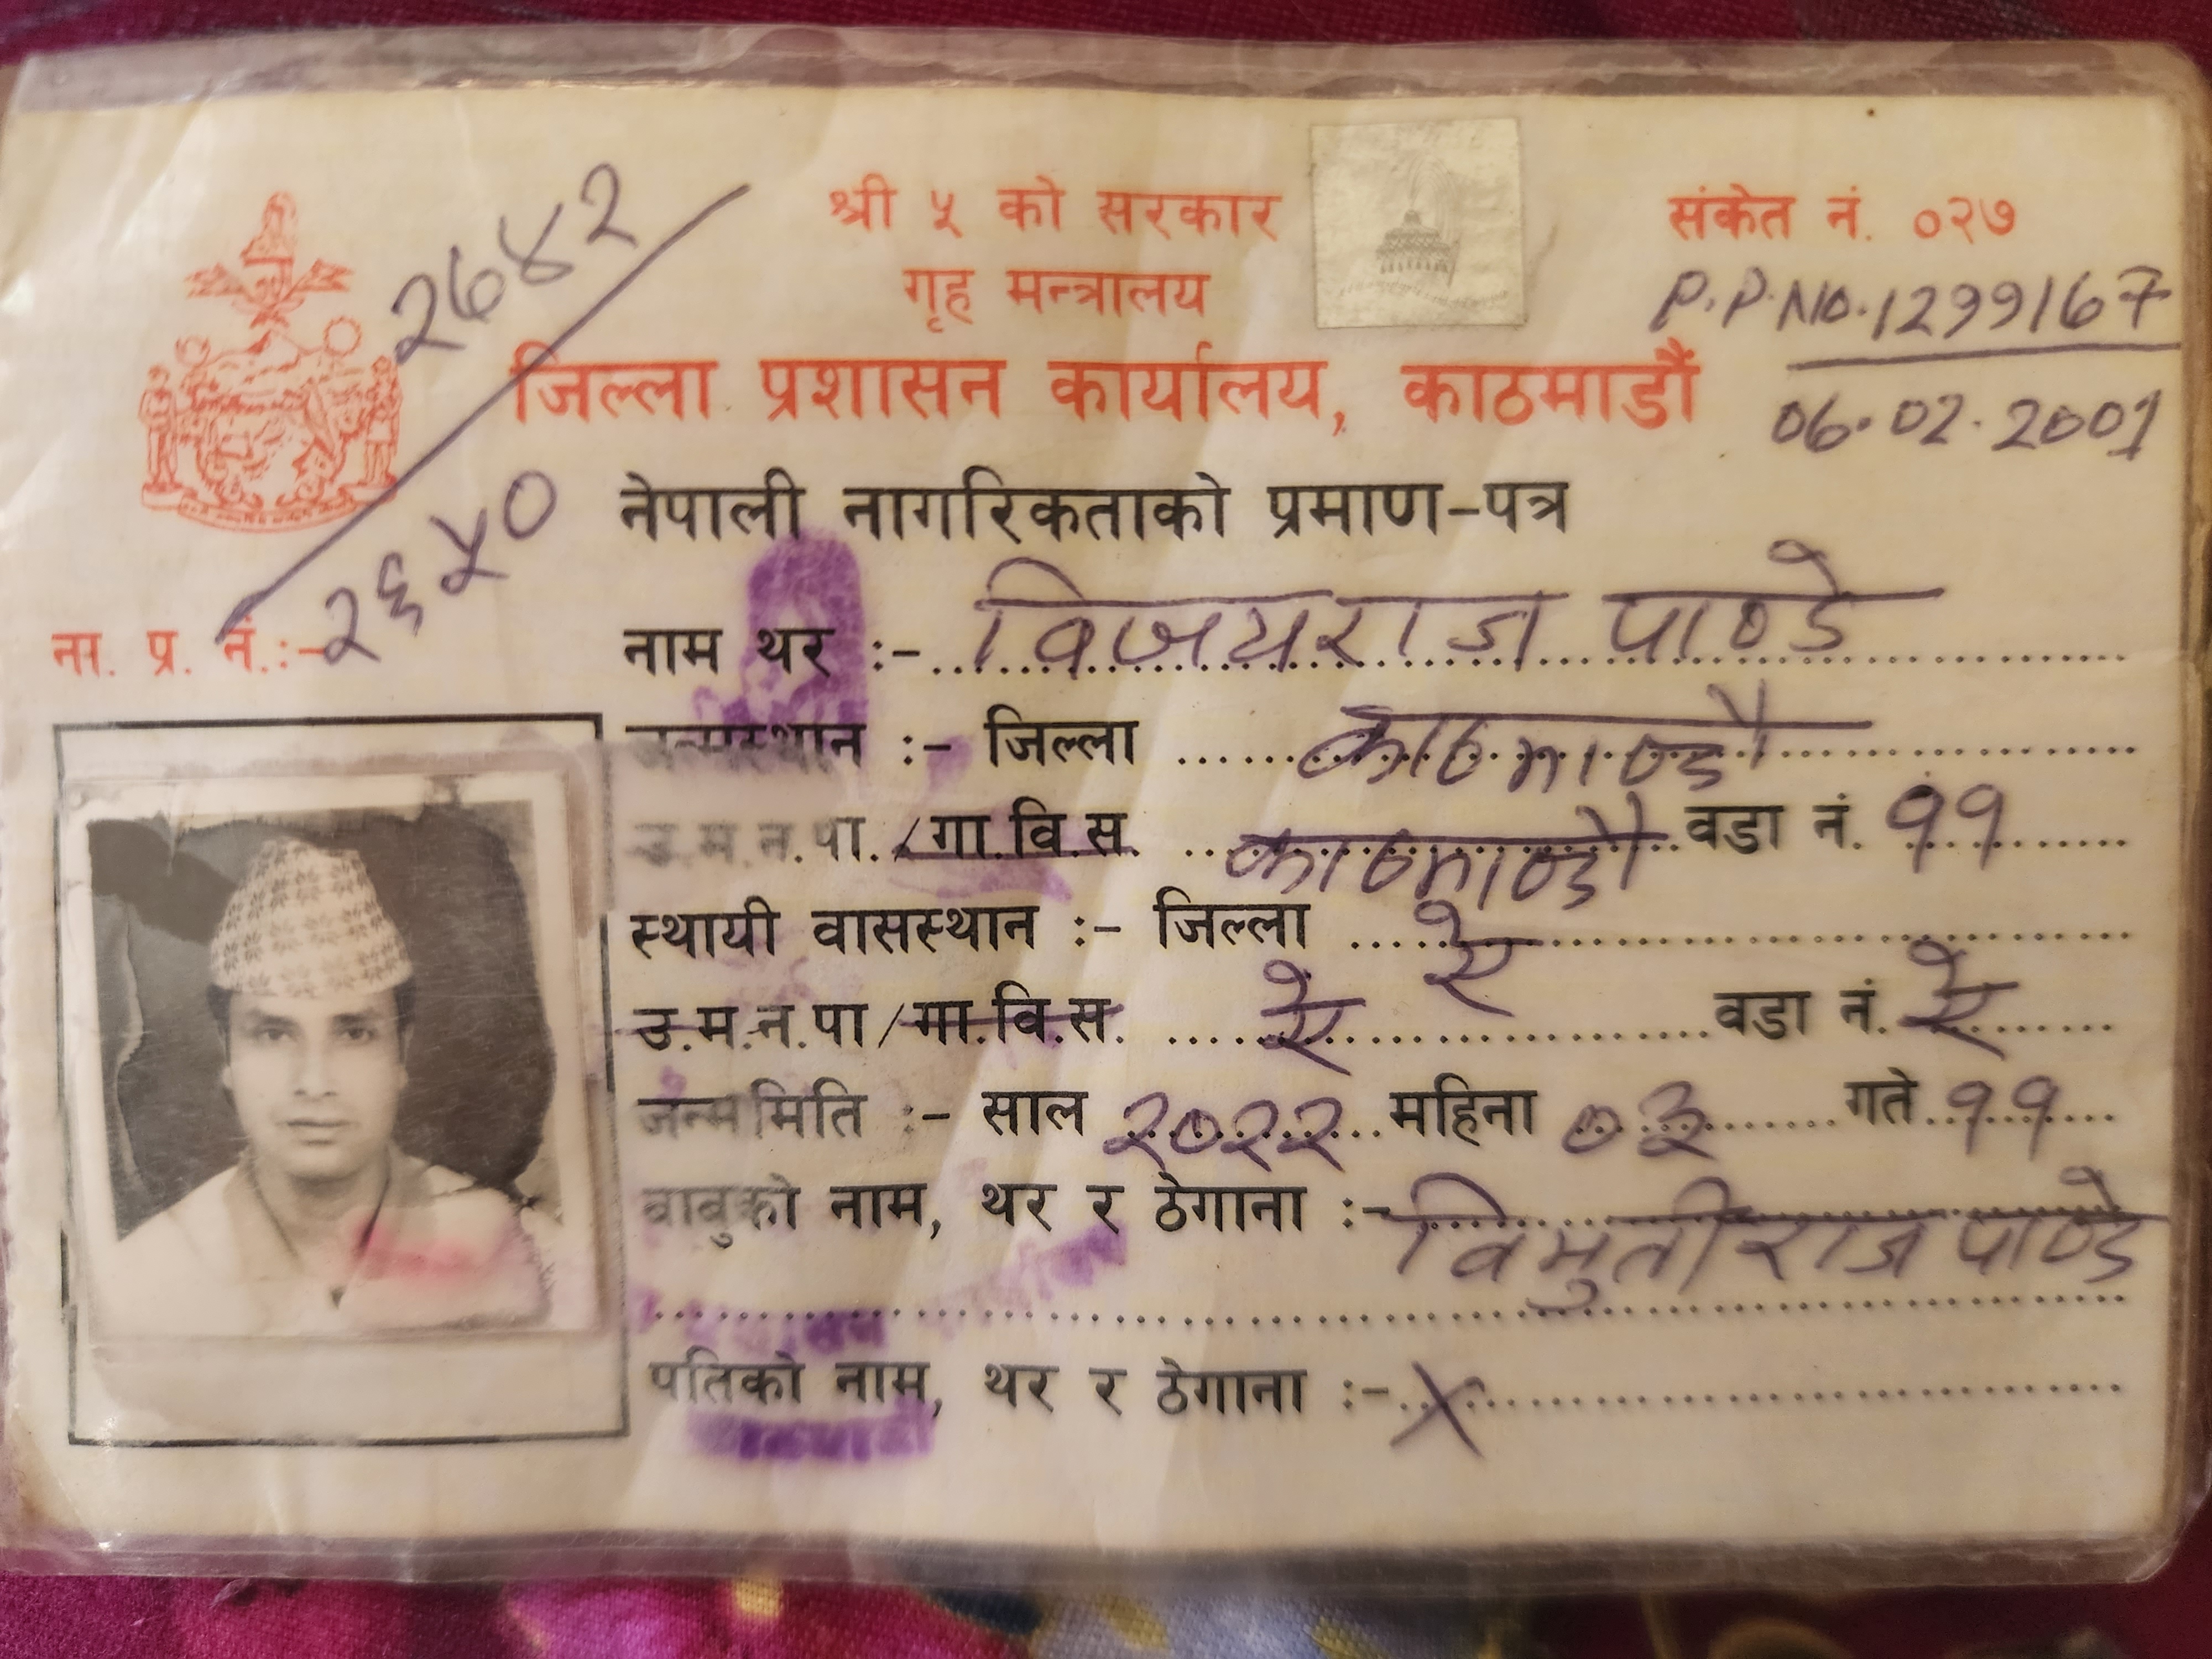 श्री ५ को सरकार
संकेत नं. ०२७
गृह मन्त्रालय
P.P No. 1299167
06.02.2001
जिल्ला प्रशासन कार्यालय, काठमाडौं
नेपाली नागरिकताको प्रमाण-पत्र
ना. प्र. नं.:- २७४२ / २६५०
नाम थर :- विजयराज पाण्डे
जन्मस्थान :- जिल्ला काठमाण्डौ
उ.म.न.पा./गा.वि.स. काठमाण्डौ वडा नं. ११
स्थायी वासस्थान :- जिल्ला ऐ
उ.म.न.पा/गा.वि.स. ऐ वडा नं. ऐ
जन्ममिति :- साल २०२२ महिना ०३ गते ११
बाबुको नाम, थर र ठेगाना :- विमुतीराज पाण्डे
पतिको नाम, थर र ठेगाना :- X